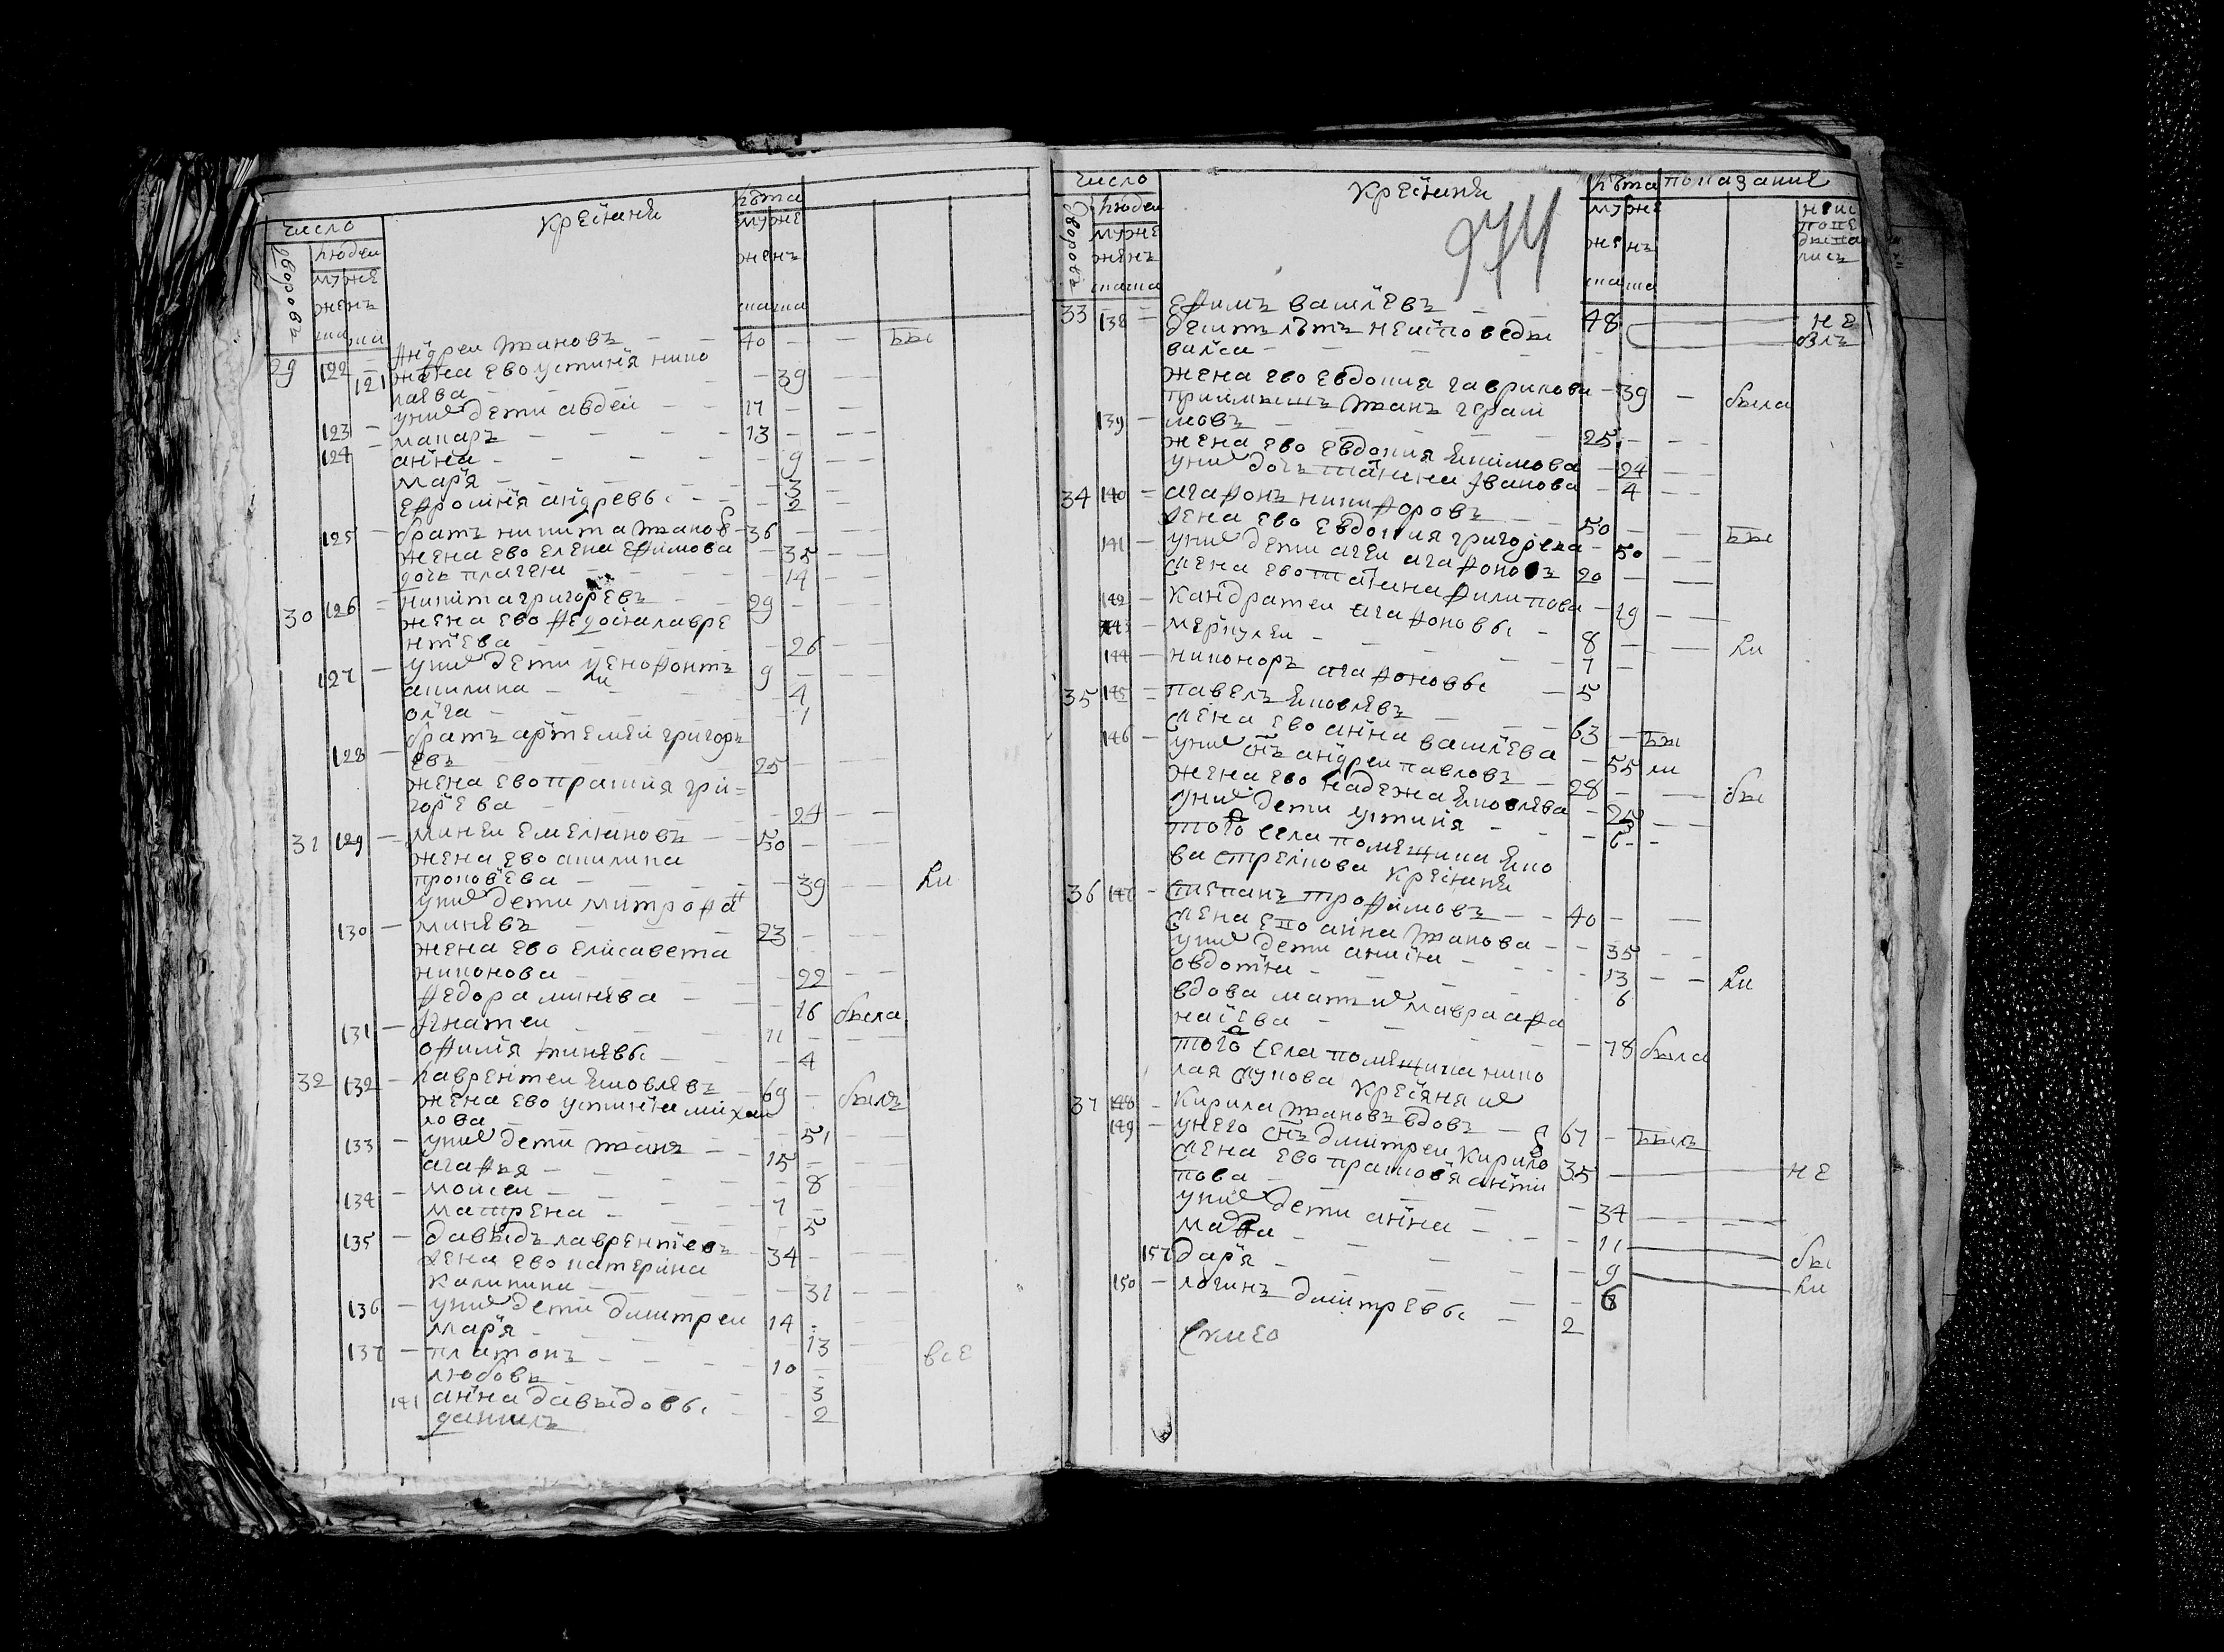 число
крестьянѣ
лѣта
дворовъ
людей
мужеска
женска
мужеска
женска
29 122 Андреи Ивановъ 40 бы
121 жена ево устинья нико
лаева 39
123 у них дети авдеи 17
124 макаръ 13
анна 9
марья 3
ефросинья андреевы 2
125 братъ никита Иванов 36
жена ево елена ефимова 35
дочь пелагея 14
30 126 никита григорьевъ 29
жена ево федосья лавре
нтьева 26
127 у них дети ксенофонтъ 9
акилина 4 ли
олга 1
128 братъ артемеи григорь
евъ 25
жена ево праския гри=
горьева 24
31 129 минеи емельяновъ 50
жена ево акилина
прокофьева 39 ли
у них дети митрофа
130 минѣвъ 23
жена ево елисавета
никонова 22
федора минѣва 16 была
131 Игнатеи 11
офимья минѣвы 4
32 132 лаврентеи яковлевъ 69 былъ
жена ево устинья михаи
лова 51
133 у них дети Иванъ 15
агафья 8
134 моисеи 7
матрена 5
135 давыдъ лаврентьевъ 34
жена ево катерина
калинина 31
136 у них дети дмитреи 14
марья 13
137 платонъ 10 все
любовь 3
141 анна давыдовы 2
даниилъ
число
крестьянѣ
974
лѣта показание
дворовъ
людеи
мужеска
женска
мужеска
женска
неис
пове
дыва
лись
33 138 ефимъ васильевъ 48 не
десить лѣтъ неисповеды былъ
вался
жена ево евдокия гаврилова 39 была
139 приимышъ Иванъ гераси
мовъ 25
жена ево евдокия якимова 24
у них дочь татьяна Иванова 4
34 140 агафонъ никифоровъ 50 бы
жена ево евдокия григорьева 50
141 у них дети агеи агафоновъ 20
жена ево татьяна филипова 19
142 Кандратеи агафоновы 8 ли
143 меркулеи 7
144 никоноръ агафоновы 5
35 145 павелъ яковлевъ 63 бы
жена ево анна васильева 55 ли
146 у них сынъ андреи павловъ 28 бы
жена ево надежа яковлева 25
у них дети устинья 6
того села помещика яко
ва стрелкова крестьянѣ
36 147 степанъ трофимовъ 40
жена ево анна Иванова 35
у них дети аксинья 13 ли
овдотья 6
вдова мать их мавра афа
насьева 78 была
того села помещика нико
лая сукова крестьяня их
37 148 Кирила Ивановъ вдовъ 67 былъ
149 у него сынъ дмитреи Кирило 35 не
жена ево прасковья анти
пова 34
у них дети анна 11
марфа 9 бы
157 дарья 6 ли
150 логинъ дмитревы 2